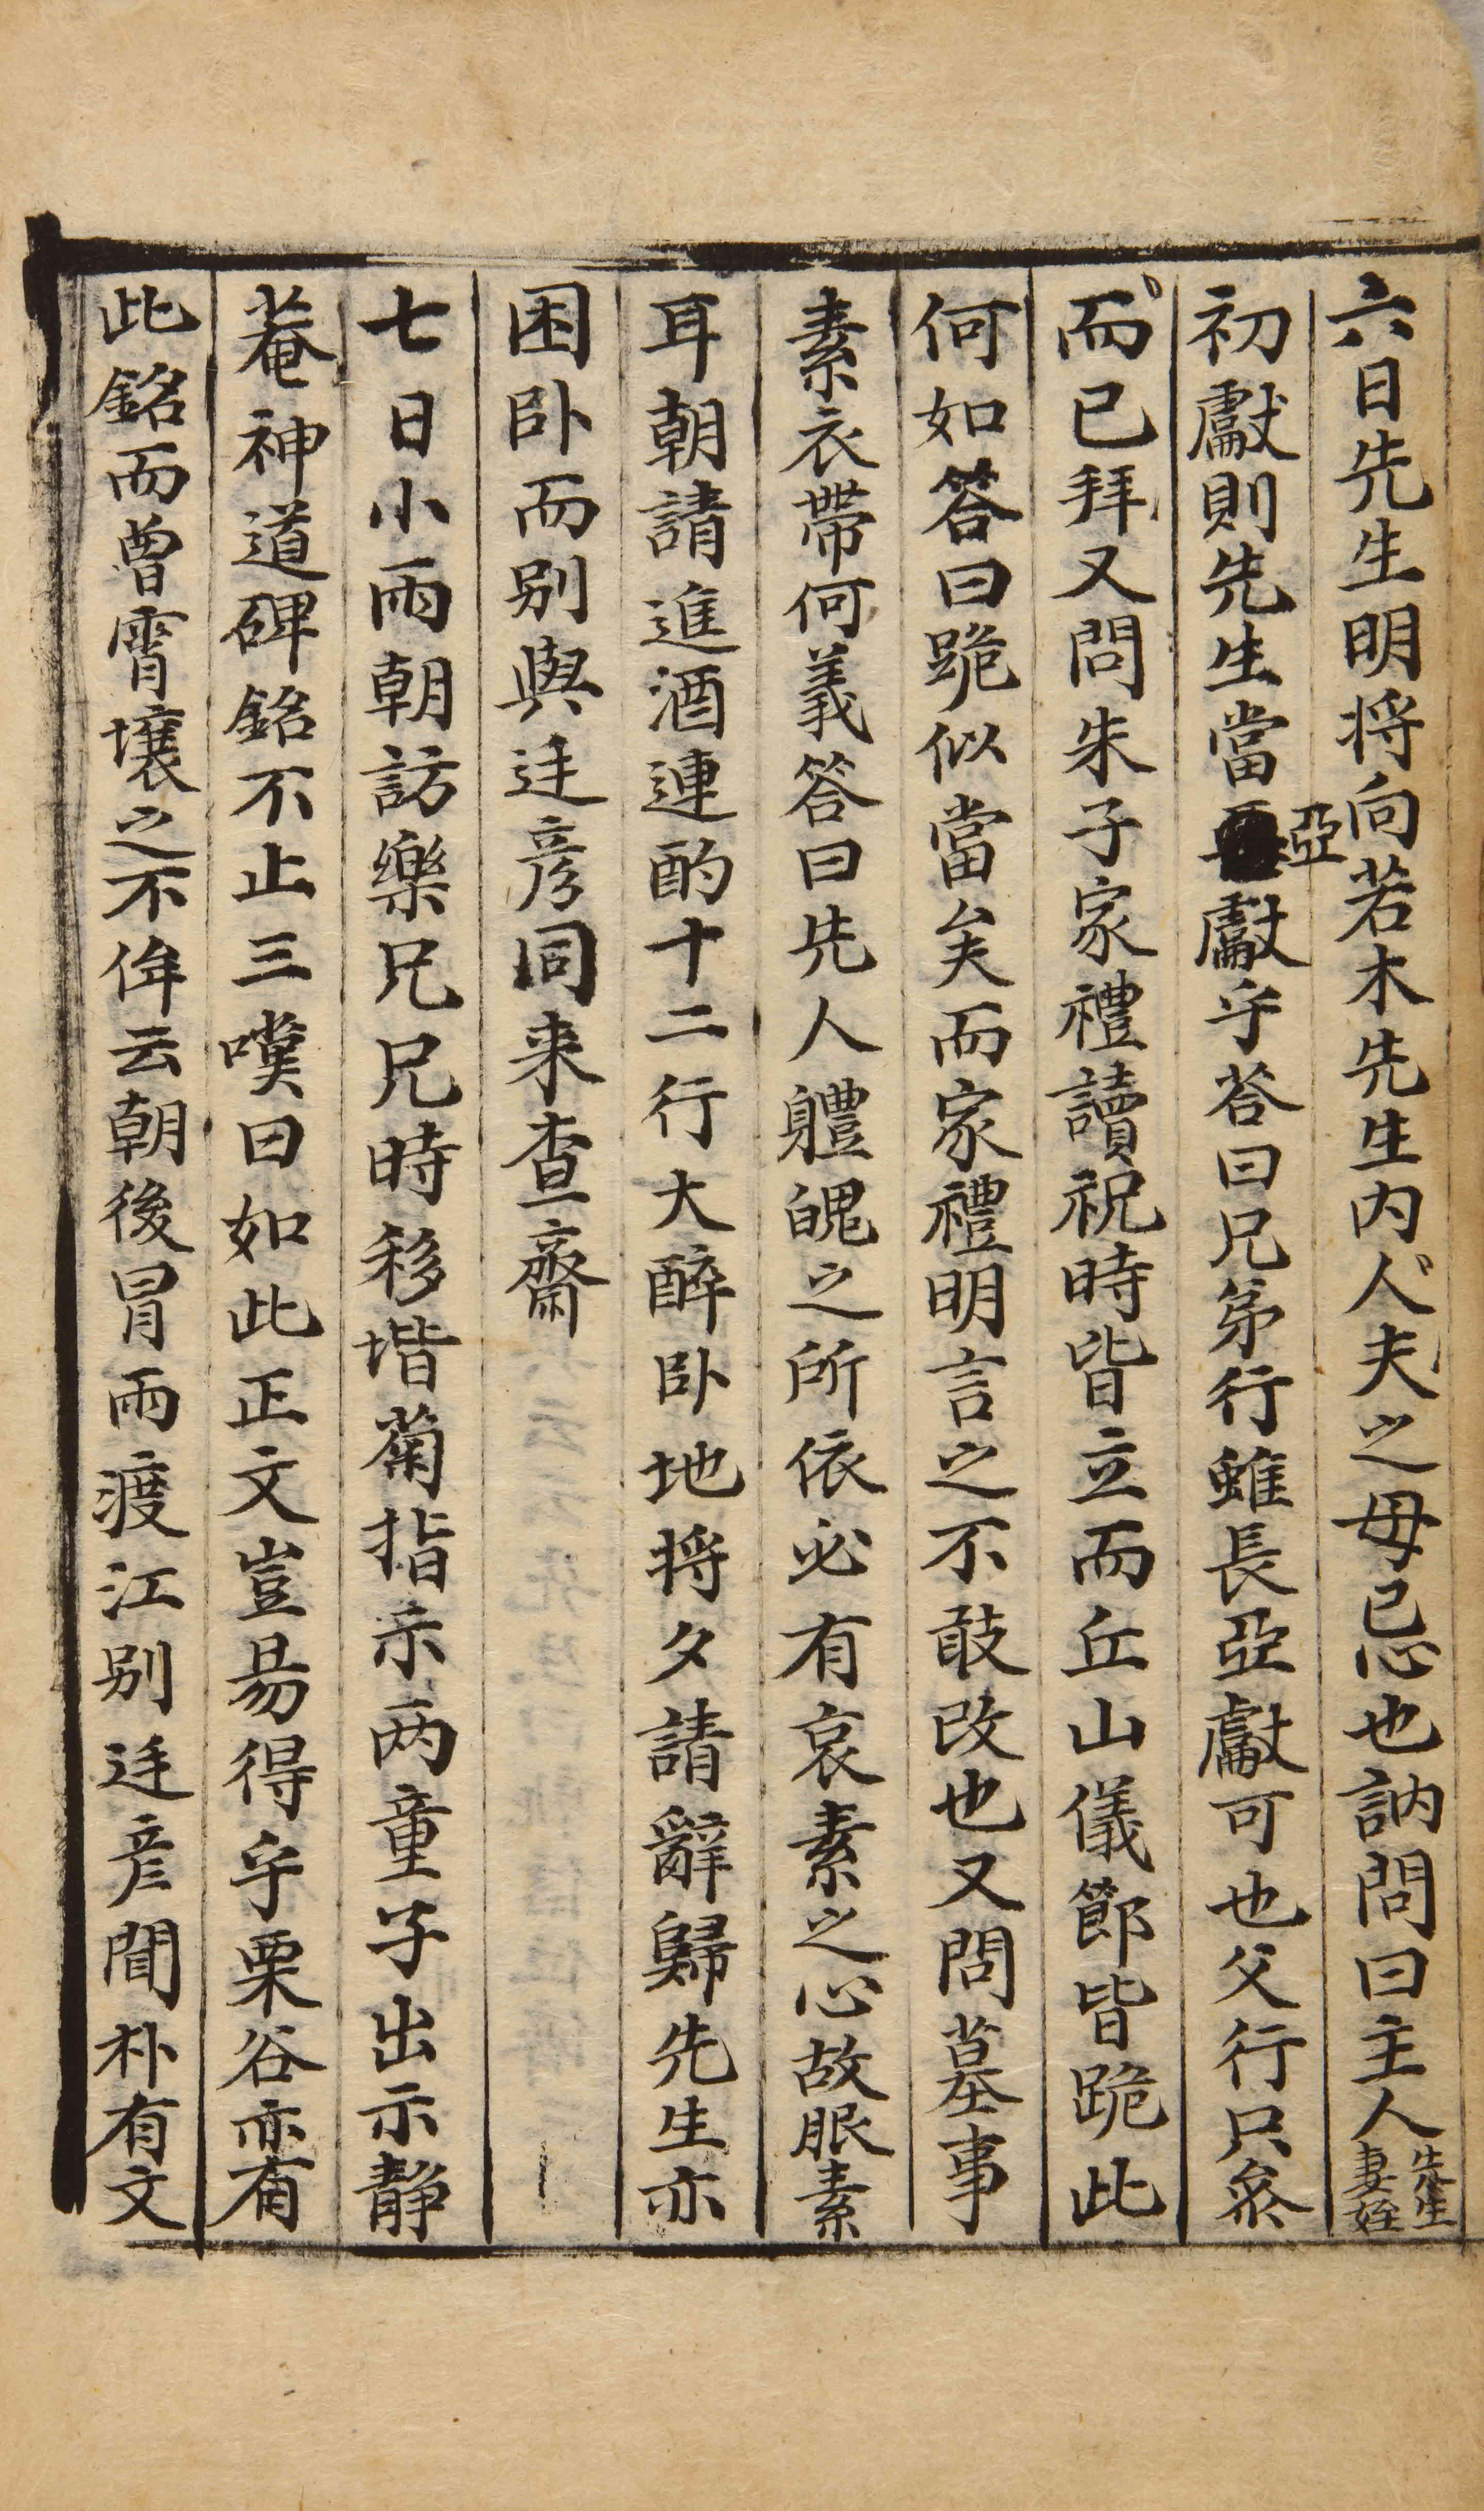 六日先生明将向若木先生内人夫之母忌也訥問曰主人先生妻姪
初獻則先生當亞獻乎答曰兄弟行雖長亞獻可也父行只叅
而已拜又問朱子家禮讀祝時皆立而丘山儀節皆跪此
何如答曰跪似當矣而家禮明言之不敢改也又問墓事
素衣帶何義答曰先人軆魄之所依必有哀素之心故服素
耳朝請進酒連酌十二行大醉卧地将夕請辭歸先生亦
困卧而别與廷彦同来査齋
七日小雨朝訪樂兄兄時移堦菊指示两童子出示靜
菴神道碑銘不止三嘆曰如此正文豈易得乎栗谷亦有
此銘而曾霄壤之不侔云朝後冒雨渡江别廷彦聞朴有文